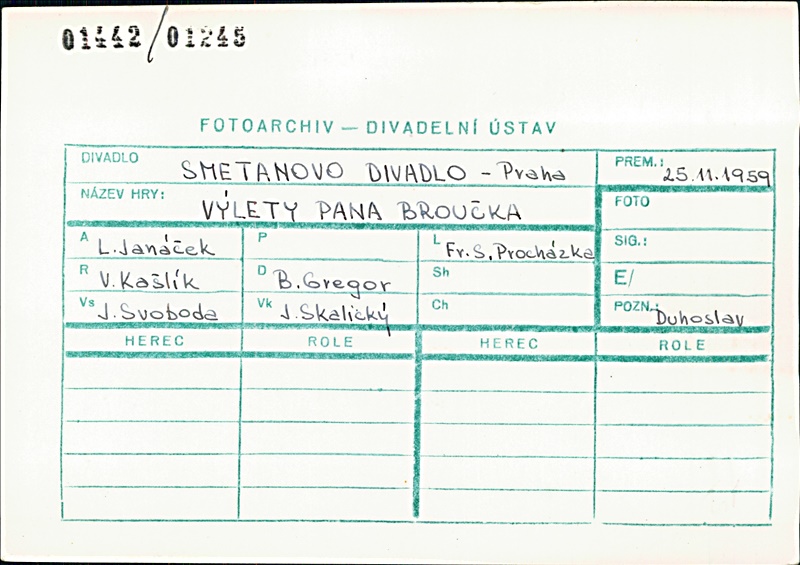 01442/01245
FOTOARCHIV — DIVADELNÍ ÚSTAV
DIVADLO SMETANOVO DIVADLO - Praha PREM.: 25.11.1959
NÁZEV HRY: VÝLETY PANA BROUČKA FOTO
A L. Janáček P L Fr. S. Procházka SIG.:
R V. Kašlík D B. Gregor Sh E/
Vs J. Svoboda Vk J. Skalický Ch POZN.: Duhoslav
HEREC ROLE HEREC ROLE